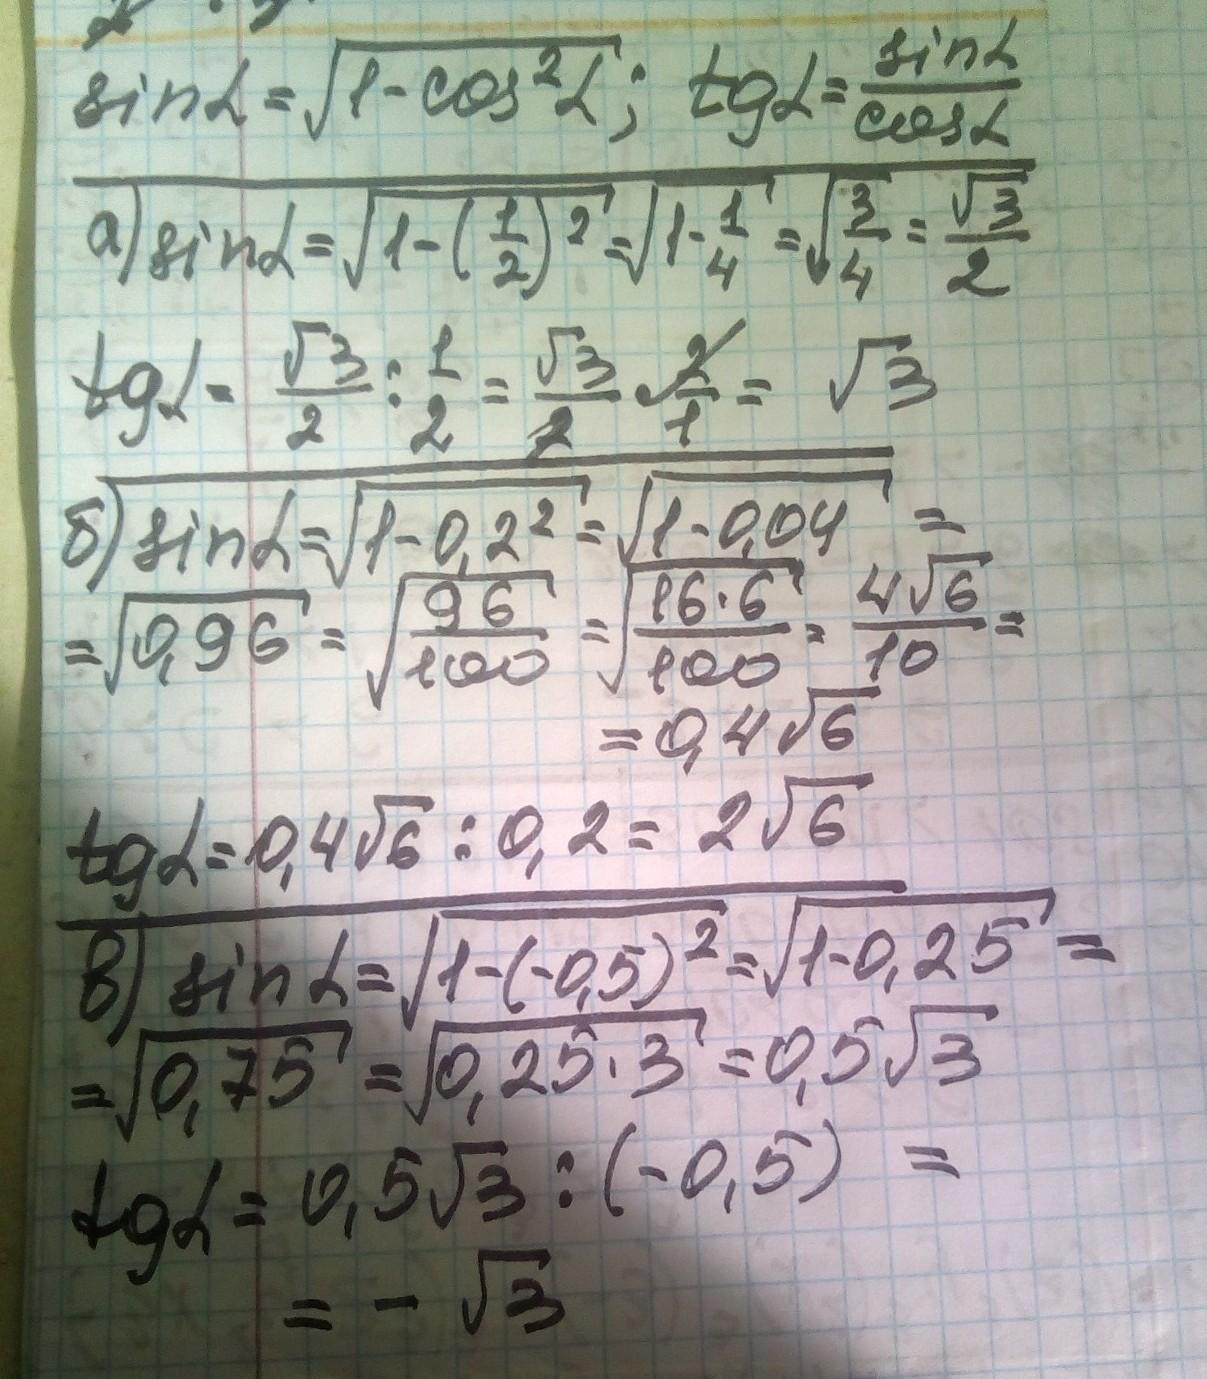 sinα = √(1-cos²α); tgα = sinα/cosα
а) sinα = √(1-(1/2)²) = √(1-1/4) = √(3/4) = √3/2
tgα = √3/2 : 1/2 = √3/2 · 2/1 = √3
б) sinα = √(1-0,2²) = √(1-0,04) =
= √0,96 = √(96/100) = √(16·6/100) = 4√6/10 =
= 0,4√6
tgα = 0,4√6 : 0,2 = 2√6
в) sinα = √(1-(-0,5)²) = √(1-0,25) =
= √0,75 = √(0,25·3) = 0,5√3
tgα = 0,5√3 : (-0,5) =
= -√3